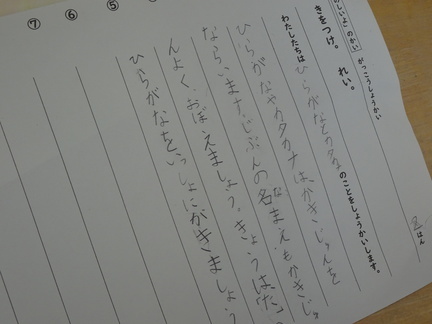 のしいよ」のかい
がっこうしょうかい
2はん
きをつけ。 れい。
わたしたちは ひらがなとカタカナのことをしょうかいします。
ひらがなやカタカナは、かきじゅんを
ならいます。じぶんの名なまえもかきじゅ
んよく、おぼえましょう。きょうは、たっ
ひらがなをいっしょにがきましょう
⑤
⑥
⑦